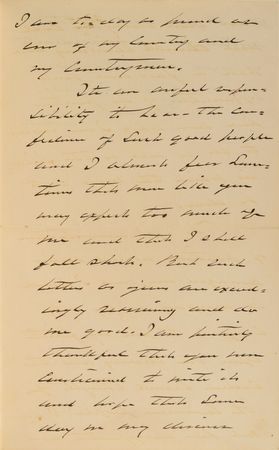 I am to-day as proud as
ever of my Country and
my Countrymen.
It's an awful respon-
sibility to bear - the con-
fidence of such good people
and I almost fear some-
times that men like you
may expect too much of
me and that I shall
fall short. But such
letters as yours are exceed-
ingly reassuring and do
me good. I am
thankful that you were
constrained to write it
and hope that some
day in my